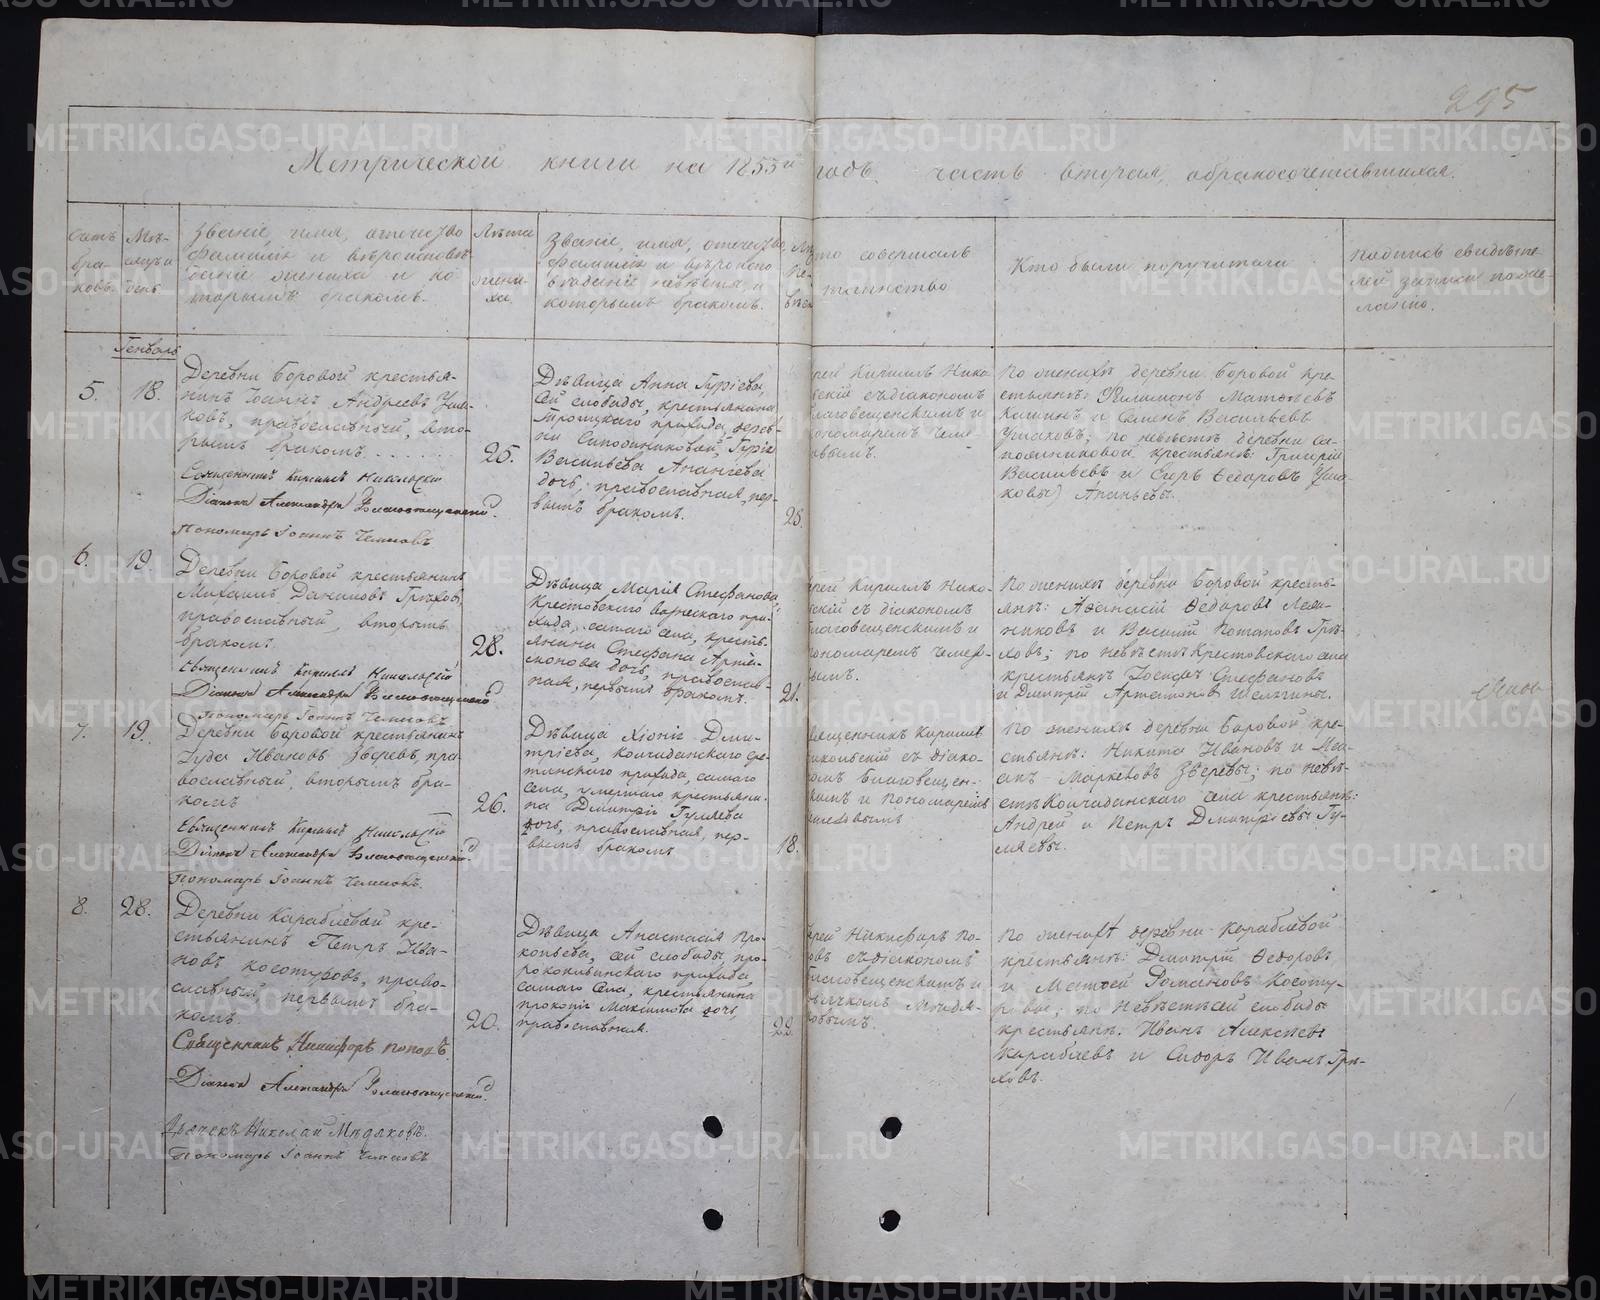 295
Метрической книги на 1853й годъ часть вторая, обракосочетавшихся.
Счетъ
бра-
ковъ.
Мѣ-
сяцъ и
день
Званіе, имя, отчество
фамилія и вѣроисповѣ-
даніе жениха и ко-
торымъ бракомъ.
Лѣта
жени-
ха.
Званіе, имя, отчество
фамилія и вѣроиспо-
вѣданіе невѣсты, и
которымъ бракомъ.
то совершалъ
таинство
Кто были поручители
подпись свидѣте-
лей записи поже-
ланію.
Генварь
5.
18.
Деревни Боровой крестья-
нинъ Іоаннъ Андреевъ Уша-
ковъ, православный, вто-
рымъ бракомъ.
Священникъ Кирилъ Никольскій
Діаконъ Александръ Благовещенскій.
Пономарь Іоаннъ Чемесовъ
25.
Дѣвица Анна Гуріева,
сей слободы, крестьянина
Троицкаго прихода, дерев-
ни Сапожниковой, Гурія
Васильева Ананьева
дочь, православная, пер-
вымъ бракомъ.
25.
рей Кирилъ Нико
скій съ діакономъ
лаговещенскимъ и
ономаремъ Чеме-
овымъ.
По женихѣ деревни Боровой кре-
стьянъ: Филимонъ Матвѣевъ
и Семенъ Васильевъ
Ушаковъ; по невѣстѣ деревни Са-
пожниковой крестьянъ: Григорій
Васильевъ и Егоръ Ѳедоровъ
Ананьевы.
6.
19.
Деревни Боровой крестьянинъ
Михаилъ Даниловъ Грѣховъ,
православный, вторымъ
бракомъ.
Священникъ Кирилъ Никольскій
Діаконъ Александръ Благовещенскій
Пономарь Іоаннъ Чемесовъ
28.
Дѣвица Марія Стефанова,
Крестовского при-
хода, самаго села, кресть-
янина Стефана Арта-
монова дочь, православ-
ная, первымъ бракомъ.
21.
рей Кириллъ Нико-
скій съ діакономъ
лаговещенскимъ и
ономаремъ Чемесо-
вымъ.
По женихѣ деревни Боровой кресть-
янъ: Аѳанасій Ѳедоровъ
и Василій Потаповъ Грѣ-
ховъ; по невѣстѣ Крестовского села
крестьянъ Іосифъ Стефановъ
и Дмитрій Артамоновъ Шелягины.
7.
19.
Деревни Боровой крестьянинъ
Іуда Ивановъ Зверевъ, пра-
вославный, вторымъ бра-
комъ
Священникъ Кирилъ Никольскій
Діаконъ Александръ Благовещенскій.
Пономарь Іоаннъ Чемесовъ.
26.
Дѣвица Хіонія Дми-
тріева, Колчаданского Сре-
тинского прихода, самаго
села, умершаго крестьяни-
на Дмитрія Гуляева
дочь, православная, пер-
вымъ бракомъ
18.
вященникъ Кирилъ
икольскій съ діако-
номъ Благовещен-
скимъ и Пономаремъ
емесовымъ
По женихѣ деревни Боровой кре-
стьянъ: Никита Ивановъ и Иса-
акъ Маркеловъ Зверевы; по невѣ-
стѣ Колчаданского села крестьянъ:
Андрей и Петръ Дмитріевы Гу-
ляевы.
8.
28.
Деревни Караблевой кре-
стьянинъ Петръ Ива-
новъ Косотуровъ, право-
славный, первымъ бра-
комъ.
Священникъ Никифоръ Поповъ.
Діаконъ Александръ Благовещенскій.
Дьячекъ Николай Мѣдяковъ.
Пономарь Іоаннъ Чемесовъ
20.
Дѣвица Анастасія Про-
копьева, сей слободы, про-
рокоильинскаго прихода
самаго села, крестьянина
Прокопія Максимова дочь,
православная.
22.
рей Никифоръ По-
овъ съ діакономъ
лаговещенскимъ и
ьячкомъ Мѣдя-
ковымъ.
По женихѣ деревни Караблевой
крестьянъ: Дмитрій Ѳедоровъ
и Матѳей Романовъ Косоту-
ровы; по невѣстѣ сей слободы
крестьянъ. Иванъ Алексѣевъ
Караблевъ и Сидоръ Иванъ Грѣ-
ховъ.
METRIKI.GASO-URAL.RU